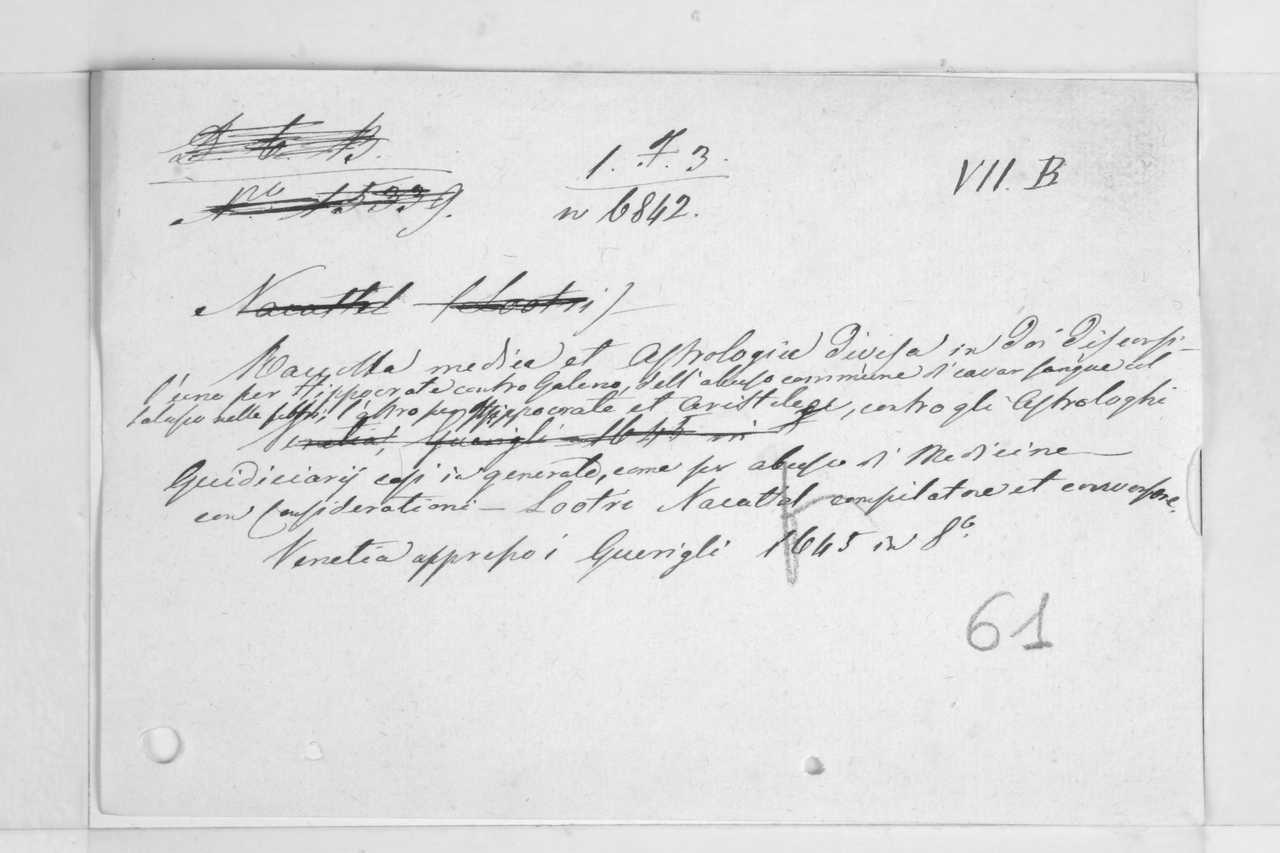 D. 6. B.
No. 15339.
1. F. 3.
n 6842.
VII. B
Nacattel (Lootri)
Racolta medica et Astrologica divisa in doi discorsi
l'uno per Hippocrate contro Galeno, dell'abuso commune di cavar sangue col
salasso nelle febri, l'altro per Hippocrate et Aristotele, contro gli Astrologhi
Venetia, Guerigli 1645 in 8
Guidiciarij cosi in generale, come per abuso di Medicine
con Considerationi – Lootri Nacattel compilatore et
Venetia appresso i Guerigli 1645 in 8º.
61